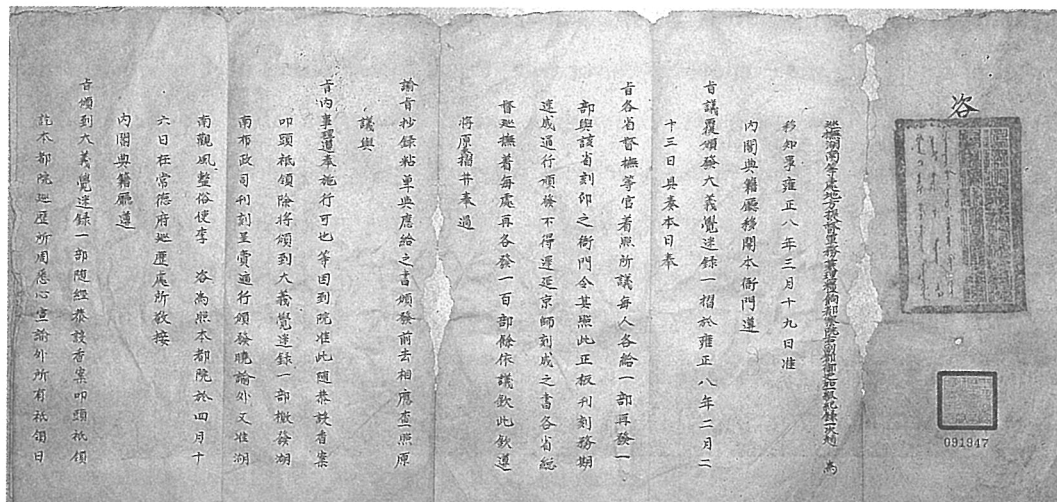 咨
巡撫湖南等處地方提督軍務兼理糧餉都察院右副都御史加一級紀錄一次趙 為
移知事雍正八年三月十九日准
內閣典籍廳移開本衙門遵
旨議覆頒發大義覺迷錄一摺於雍正八年二月二
十三日具奏本日奉
旨各省督撫等官着照所議每人各給一部再發一
部與該省刻印之衙門令其照此正板刊刻務期
速成通行頒發不得遲延京師刻成之書各省總
督巡撫着每處再各發一百部餘依議欽此欽遵
將原摺并奏過
諭旨抄錄粘單與應給之書頒發前去相應查照原
議與
旨內事理遵奉施行可也等因到院准此隨恭設香案
叩頭祇領除將頒到大義覺迷錄一部檄發湖
南布政司刊刻呈賫通行頒發曉諭外又准湖
南觀風整俗使李 咨為照本都院於四月十
六日在常德府巡歷處所敎接
內閣典籍廳遵
旨頒到大義覺迷錄一部隨經恭設香案叩頭祇領
訖本都院巡歷所周悉心宣諭外所有祇領日
091947